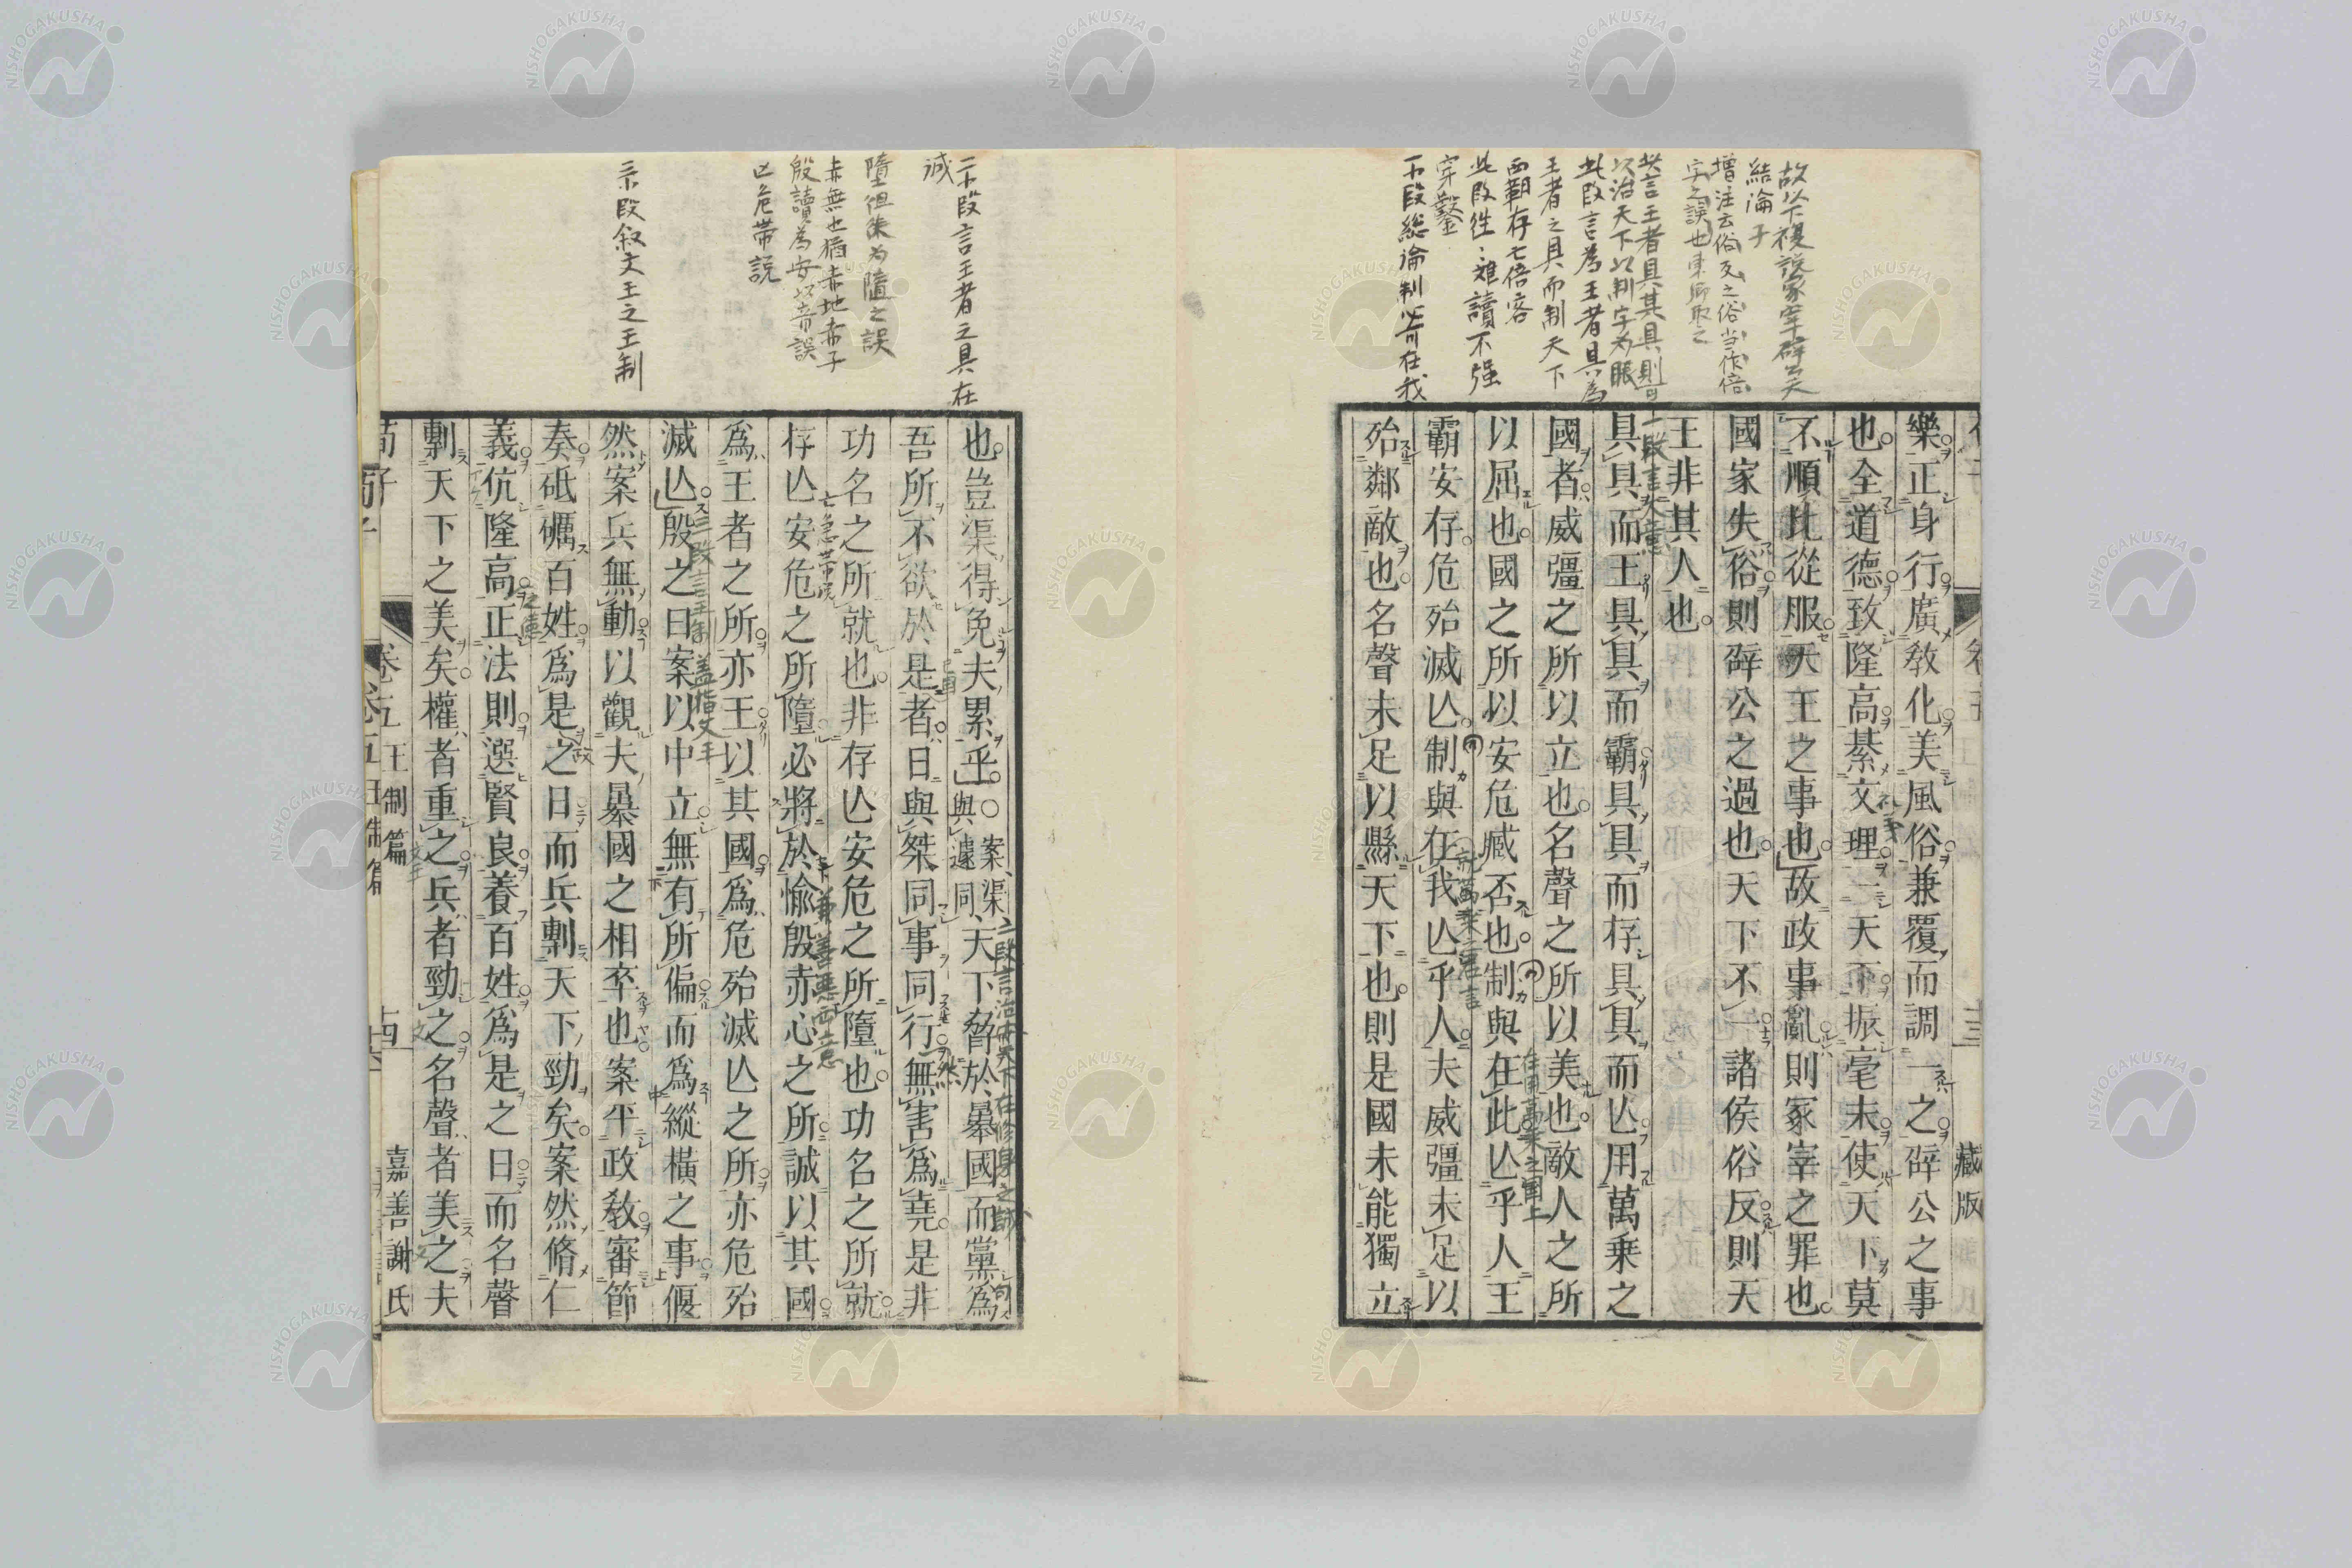 故以下複説冡宰辟公天
結論子
増注云俗反之俗当作倍
字之誤也
共言王者具其具則可
以治天下以制字為眼
此段言為王者具為
王者之具而制天下
而覇存亡倍容
此段往々難讀不強
穿鑿
下段総論制必可在我
樂正身行廣教化美風俗兼覆而調一之辟公之事
也全道德致隆高綦文理一天下振毫末使天下莫
不順比從服天王之事也故政事亂則冢宰之罪也
國家失俗則辟公之過也天下不一諸侯俗反則天
王非其人也
一段言大意
具具而王具具而霸具具而存具具而亾用萬乘之
國者威彊之所以立也名聲之所以美也敵人之所
以屈也國之所以安危臧否也制與在此亾乎人王
霸安存危殆滅亾制與在我亾乎人夫威彊未足以
殆鄰敵也名聲未足以縣天下也則是國未能獨立
藏版
二下段言王者之具在
誠
墮但朱為隨之誤
赤無也猶赤地赤子
殷讀為安以音誤
亡危帯説
三下段叙文王之王制
也豈渠得免夫累乎○案渠與遽同天下脅於暴國而黨爲
二段言治天下在修身之誠
吾所不欲於是者日與桀同事同行無害爲堯是非
功名之所就也非存亾安危之所墮也功名之所就
存亾安危之所墮必將於愉殷赤心之所誠以其國
爲王者之所亦王以其國爲危殆滅亾之所亦危殆
滅亾殷之日案以中立無有所偏而爲縱橫之事偃
三段言王制蓋指文王
然案兵無動以觀夫暴國之相卒也案平政教審節
奏砥礪百姓爲是之日而兵剸天下勁矣案然脩仁
義伉隆高正法則選賢良養百姓爲是之日而名聲
剸天下之美矣權者重之兵者勁之名聲者美之夫
荀子
卷五
王制篇
十四
嘉善謝氏